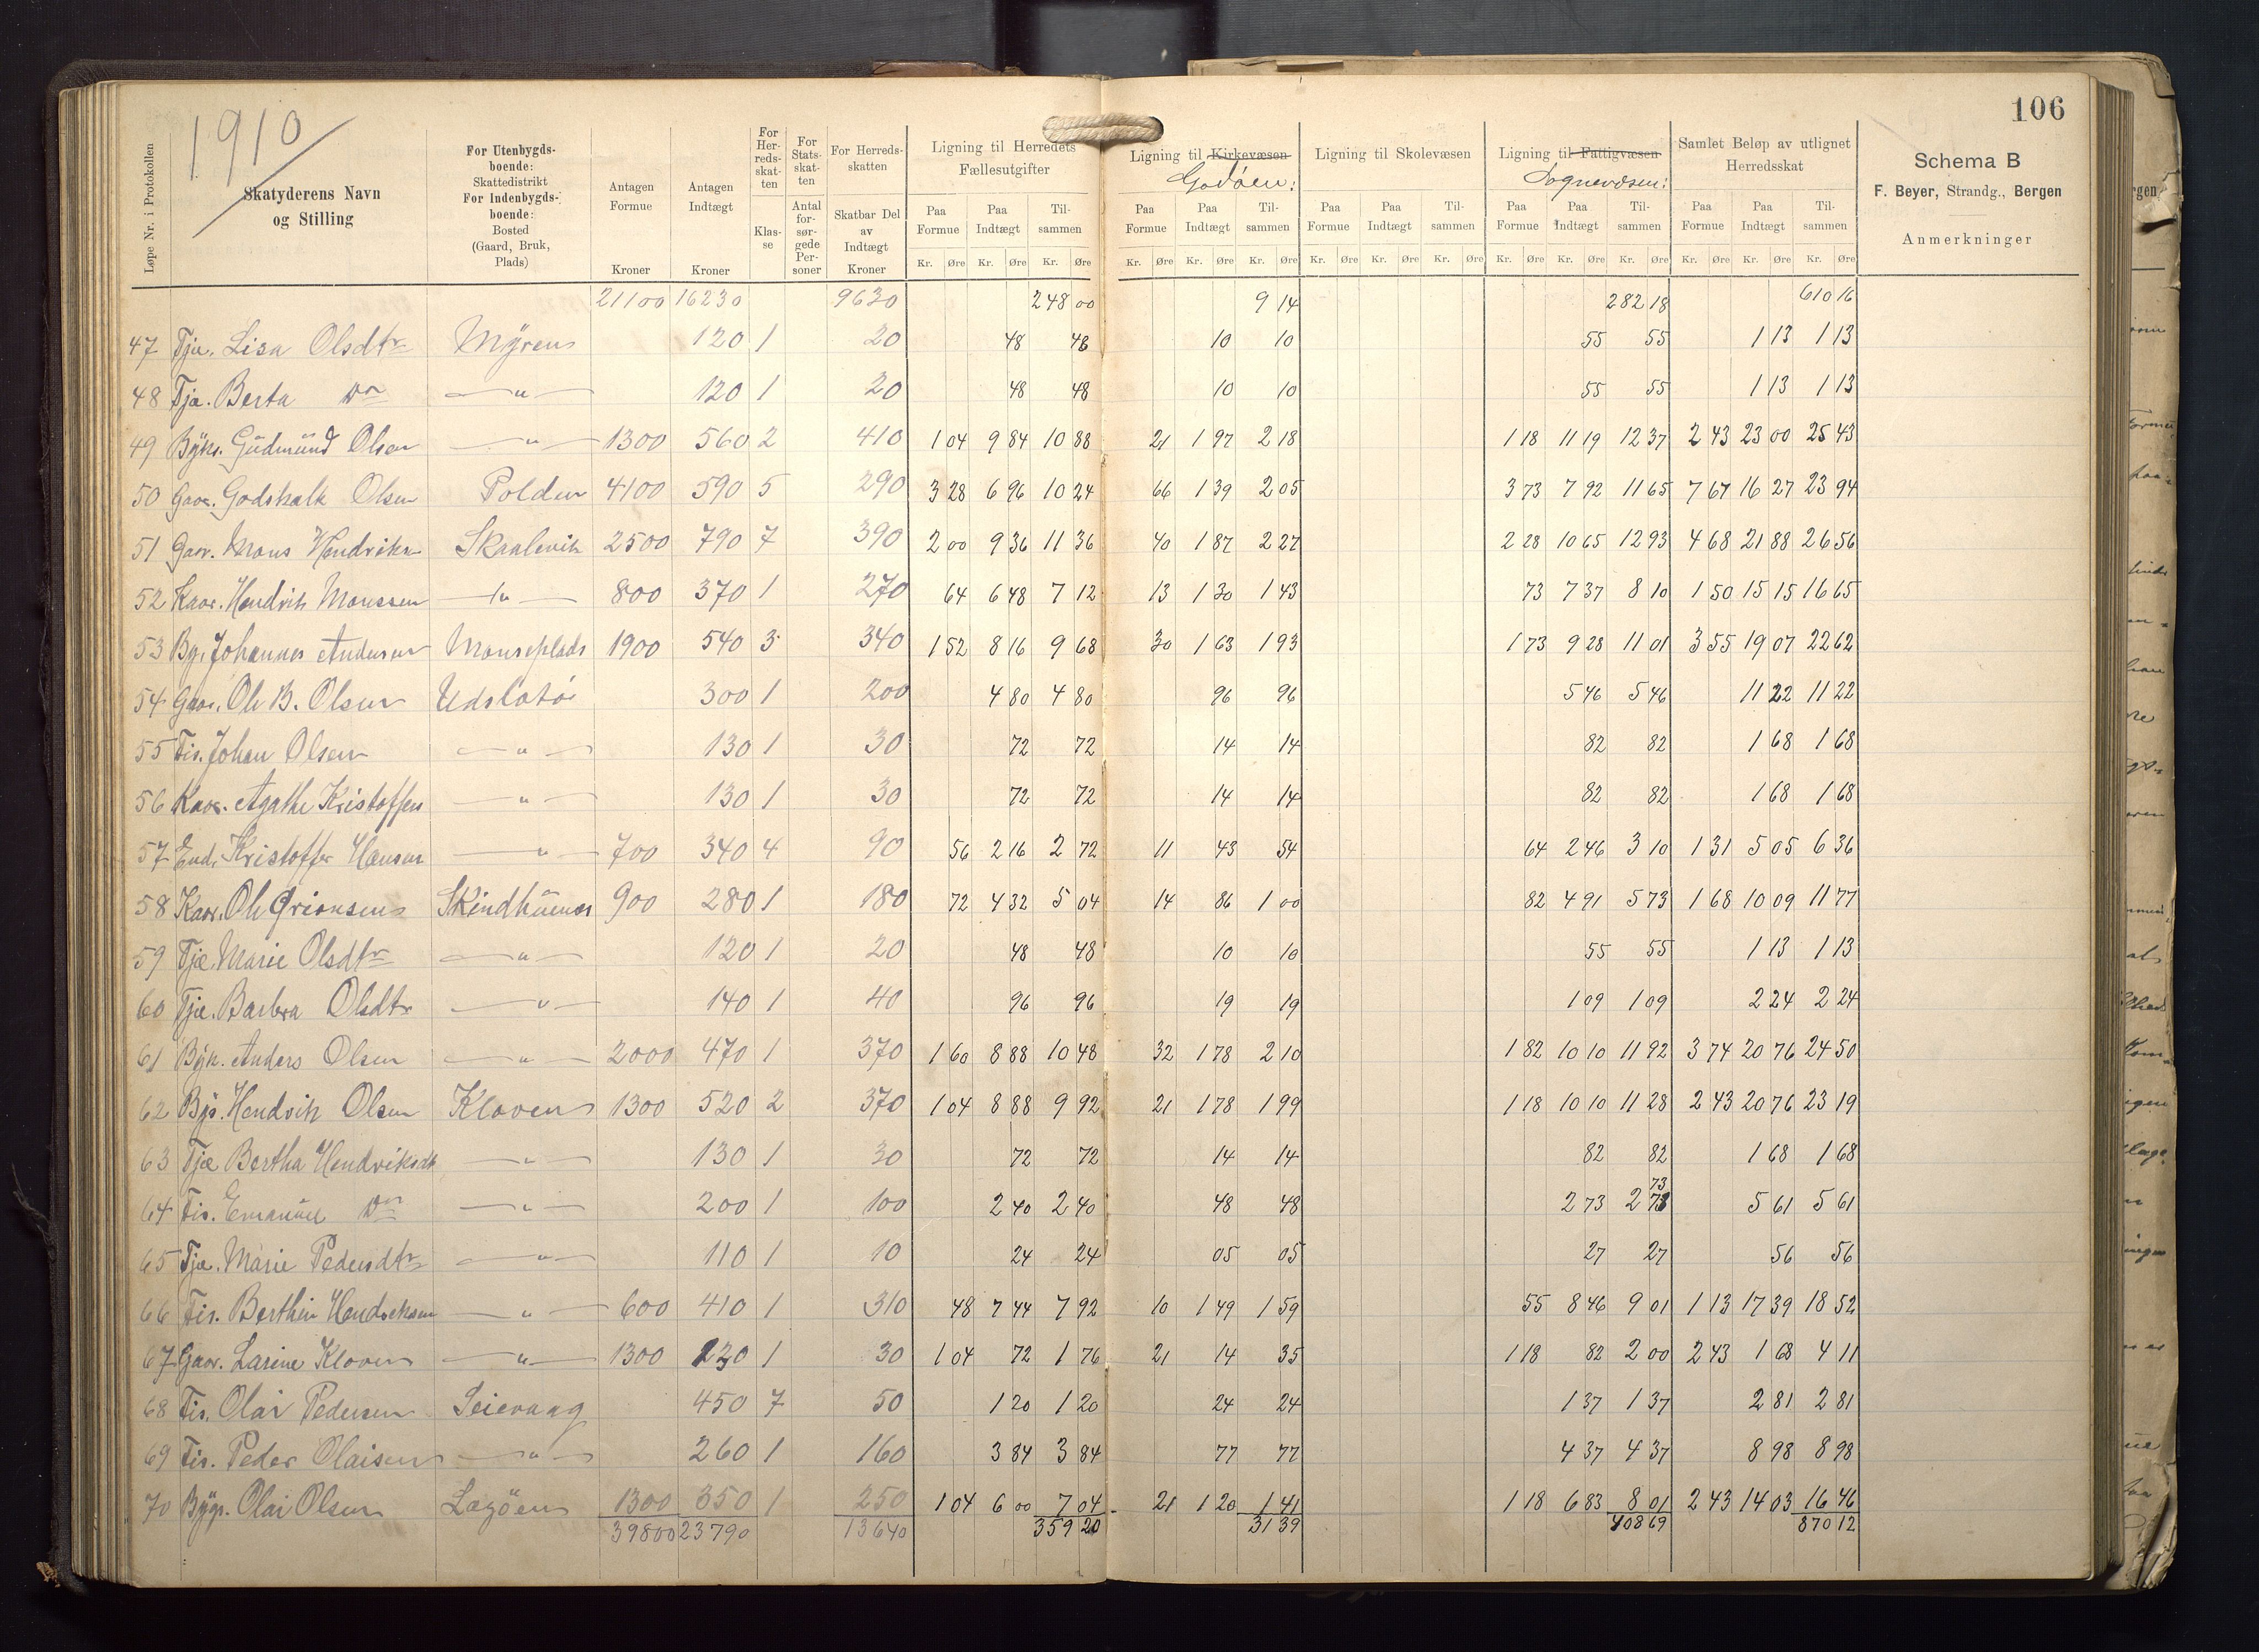 1910
106
Løpe Nr. i Protokollen
Skatyderens Navn og Stilling
For Utenbygdsboende: Skattedistrikt For Indenbygdsboende: Bosted (Gaard, Bruk, Plads)
Antagen Formue Kroner
Antagen Indtægt Kroner
For Herredsskatten Klasse
For Statsskatten Antal forsørgede Personer
For Herredsskatten Skatbar Del av Indtægt Kroner
Ligning til Herredets Fællesutgifter
Ligning til Kirkevæsen Godøen:
Ligning til Skolevæsen
Ligning til Fattigvæsen Sognevæsen:
Samlet Beløp av utlignet Herredsskat
Schema B
F. Beyer, Strandg., Bergen
Anmerkninger
Paa Formue Paa Indtægt Tilsammen Paa Formue Paa Indtægt Tilsammen Paa Formue Paa Indtægt Tilsammen Paa Formue Paa Indtægt Tilsammen Paa Formue Paa Indtægt Tilsammen
Kr. Øre Kr. Øre Kr. Øre Kr. Øre Kr. Øre Kr. Øre Kr. Øre Kr. Øre Kr. Øre Kr. Øre Kr. Øre Kr. Øre Kr. Øre Kr. Øre Kr. Øre
21100 16230 9630 248 00 9 14 282 18 610 16
47 Tje. Lisa Olsdtr Myren 120 1 20 48 48 10 10 55 55 1 13 1 13
48 Tje. Berta Do — " — 120 1 20 48 48 10 10 55 55 1 13 1 13
49 Bÿks. Gudmund Olsen — " — 1300 560 2 410 1 04 9 84 10 88 21 1 97 2 18 1 18 11 19 12 37 2 43 23 00 25 43
50 Gaar. Godskalk Olsen Polden 4100 590 5 290 3 28 6 96 10 24 66 1 39 2 05 3 73 7 92 11 65 7 67 16 27 23 94
51 Gaar. Mons Hendriksen Skaalevik 2500 790 7 390 2 00 9 36 11 36 40 1 87 2 27 2 28 10 65 12 93 4 68 21 88 26 56
52 Kaar. Hendrik Monssen — " — 800 370 1 270 64 6 48 7 12 13 1 30 1 43 73 7 37 8 10 1 50 15 15 16 65
53 Bg. Johannes Andersen Monseplads 1900 540 3 340 1 52 8 16 9 68 30 1 63 1 93 1 73 9 28 11 01 3 55 19 07 22 62
54 Gaar. Ole B. Olsen Udslotø 300 1 200 4 80 4 80 96 96 5 46 5 46 11 22 11 22
55 Fis. Johan Olsen — " — 130 1 30 72 72 14 14 82 82 1 68 1 68
56 Kaar. Agathe Kristoffen — " — 130 1 30 72 72 14 14 82 82 1 68 1 68
57 Kristoffer Hansen — " — 700 340 4 90 56 2 16 2 72 11 43 54 64 2 46 3 10 1 31 5 05 6 36
58 Kaar. Ole Grionsen Skindhuenes 900 280 1 180 72 4 32 5 04 14 86 1 00 82 4 91 5 73 1 68 10 09 11 77
59 Tje. Marie Olsdtr — " — 120 1 20 48 48 10 10 55 55 1 13 1 13
60 Tje. Barbra Olsdtr — " — 140 1 40 96 96 19 19 1 09 1 09 2 24 2 24
61 Bÿk. Anders Olsen — " — 2000 470 1 370 1 60 8 88 10 48 32 1 78 2 10 1 82 10 10 11 92 3 74 20 76 24 50
62 Hendrik Olsen Kloven 1300 520 2 370 1 04 8 88 9 92 21 1 78 1 99 1 18 10 10 11 28 2 43 20 76 23 19
63 Tje Bertha Hendriksdt — " — 130 1 30 72 72 14 14 82 82 1 68 1 68
64 Fis. Emanuel Do — " — 200 1 100 2 40 2 40 48 48 2 73 2 73 73 5 61 5 61
65 Tje. Marie Pedersdtr — " — 110 1 10 24 24 05 05 27 27 56 56
66 Fis. Berthin Hendriksen — " — 600 410 1 310 48 7 44 7 92 10 1 49 1 59 55 8 46 9 01 1 13 17 39 18 52
67 Gaar. Larine Kloven — " — 1300 230 1 30 1 04 72 1 76 21 14 35 1 18 82 2 00 2 43 1 68 4 11
68 Fis. Olai Pedersen Seievaag 450 7 50 1 20 1 20 24 24 1 37 1 37 2 81 2 81
69 Fis. Peder Olaisen — " — 260 1 160 3 84 3 84 77 77 4 37 4 37 8 98 8 98
70 Olai Olsen Lagöen 1300 350 1 250 1 04 6 00 7 04 21 1 20 1 41 1 18 6 83 8 01 2 43 14 03 16 46
39800 23790 13640 359 20 31 39 408 69 870 12